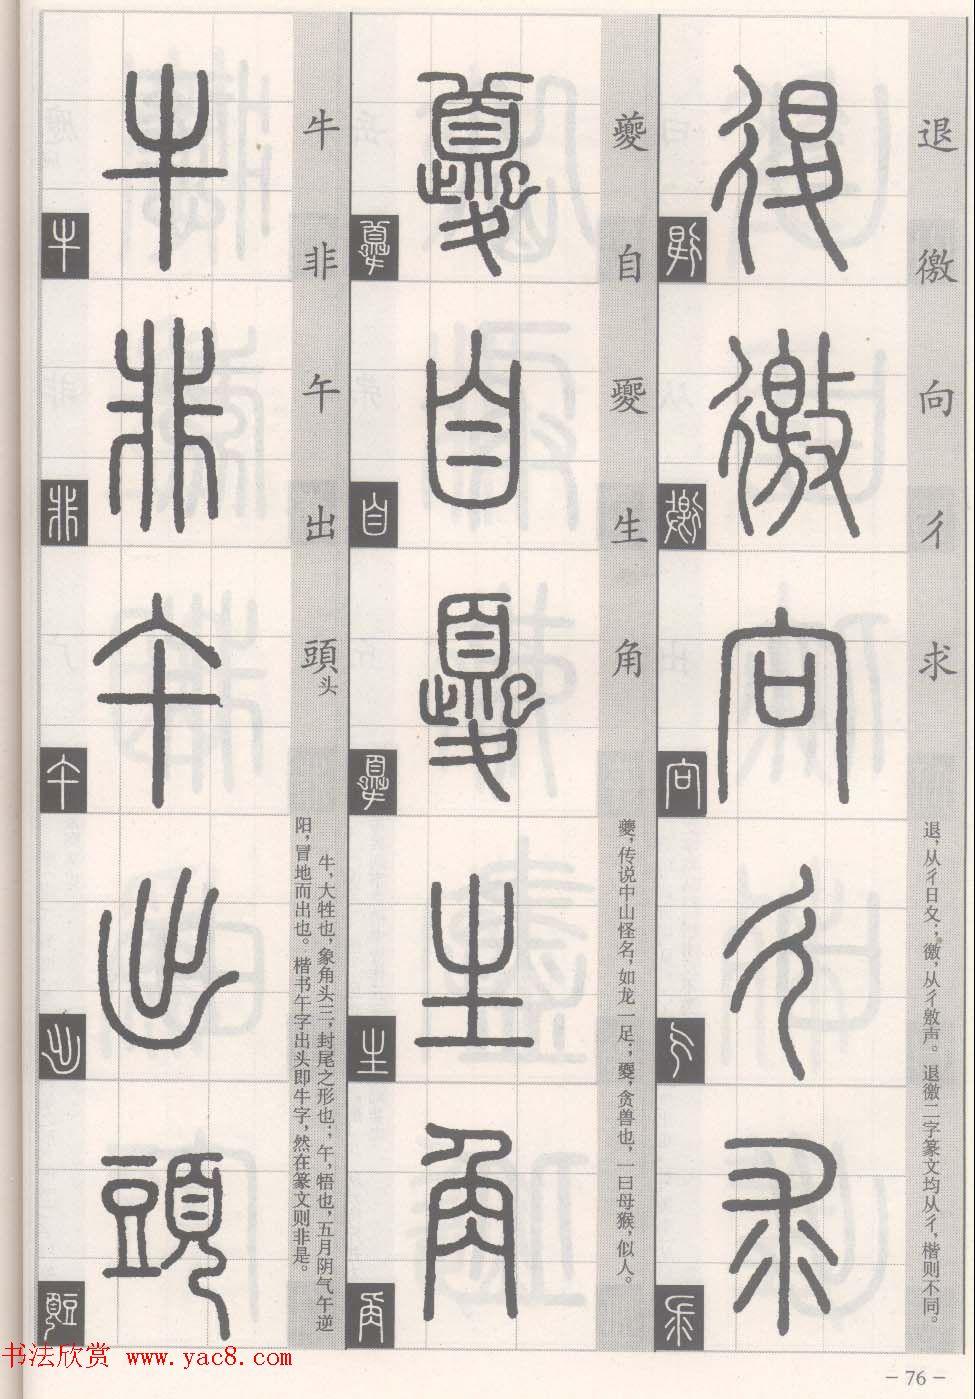 退徼向彳求
退，从彳日夊；徼，从彳敫声。退徼二字篆文均从彳，楷则不同。
夔自夒生角
夔，传说中山怪名，如龙一足；夒，贪兽也，一曰母猴，似人。
牛非午出頭头
牛，大牲也，象角头三；封尾之形也；午，牾也，五月阴气午逆
阳，冒地而出也。楷书午字出头即牛字，然在篆文则非是。
－76－
书法欣赏 www.yac8.com